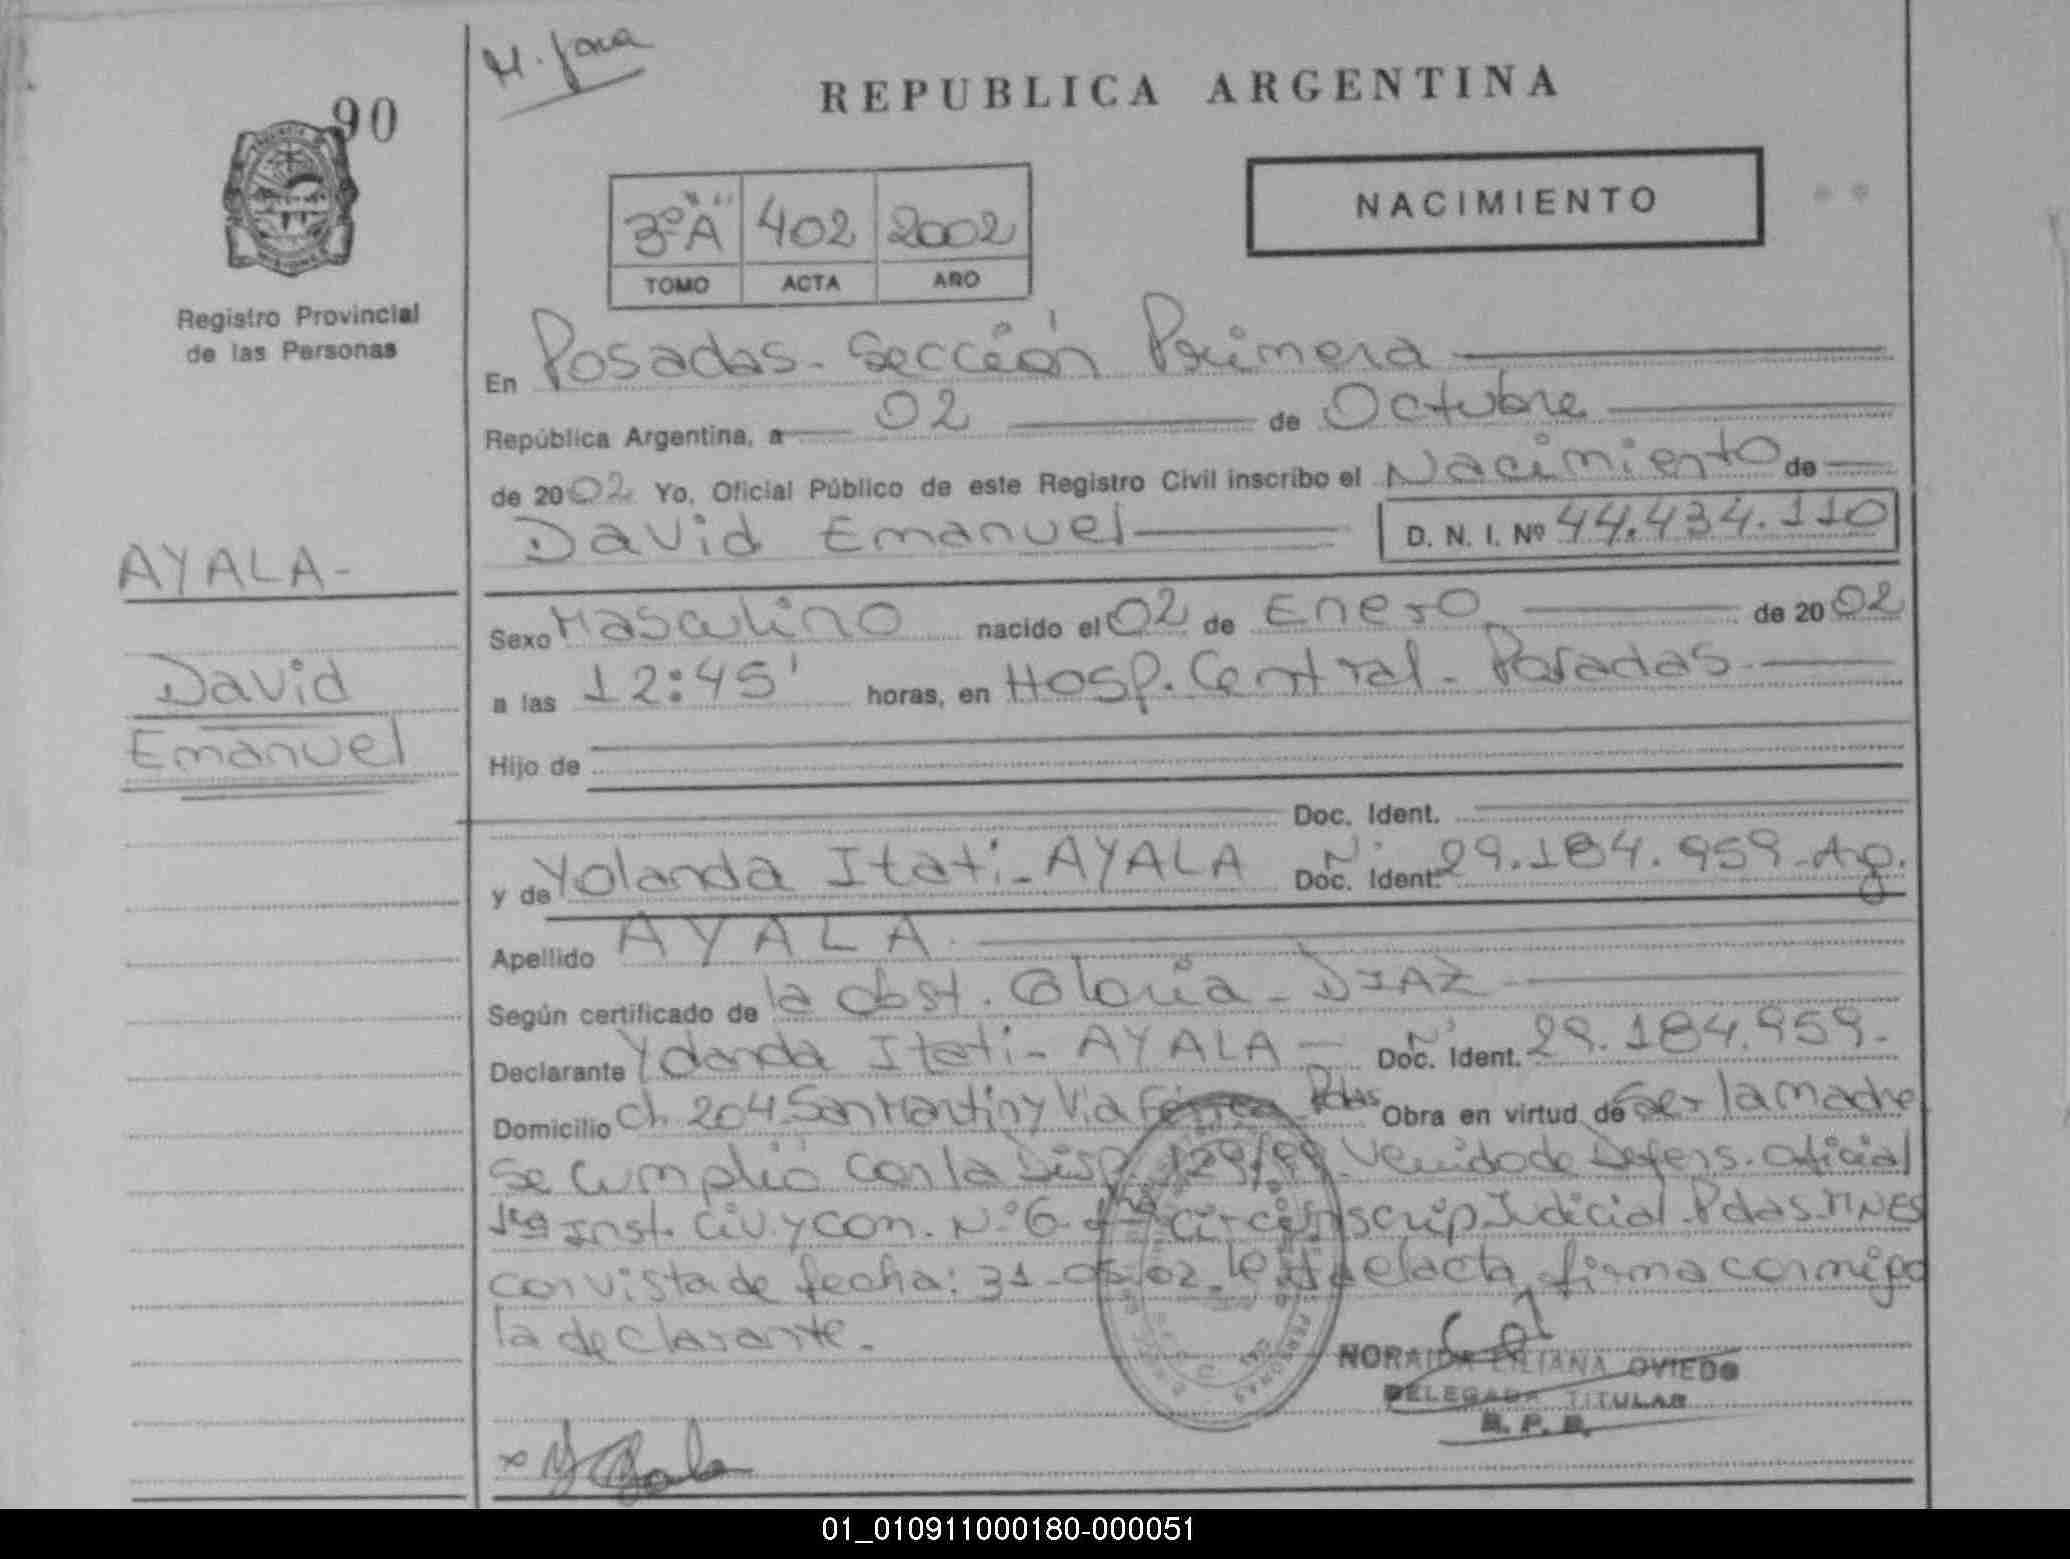 90
REPUBLICA ARGENTINA
3º "A" 402 2002
TOMO ACTA AÑO
NACIMIENTO
Registro Provincial
de las Personas
En Posadas - Sección Primera
República Argentina, a 02 de Octubre
de 2002 Yo, Oficial Público de este Registro Civil inscribo el Nacimiento de
David Emanuel D. N. I. Nº 44.434.110
AYALA-
David
Emanuel
Sexo Masculino nacido el 02 de Enero de 2002
a las 12:45' horas, en Hosp. Central - Posadas
Hijo de
Doc. Ident.
y de Yolanda Itati - AYALA Doc. Ident. Nº 29.184.959 - Ag.
Apellido AYALA
Según certificado de la obst. Gloria - DIAZ
Declarante Yolanda Itati - AYALA Doc. Ident. Nº 29.184.959-
Domicilio ch. 204 San Martin y Via Ferrea Pdas Obra en virtud de ser la madre
se cumplió con la Disp. 129/99 Venido de Defens. oficial
1ra Inst. Civ. y Com. Nº 6 circunscrip Judicial - Pdas. MNES
con vista de fecha: 31-05-02 Leida el acta, firma conmigo
la declarante.
NORAIDA LILIANA OVIEDO
DELEGADA TITULAR
R. P. P.
01_010911000180-000051